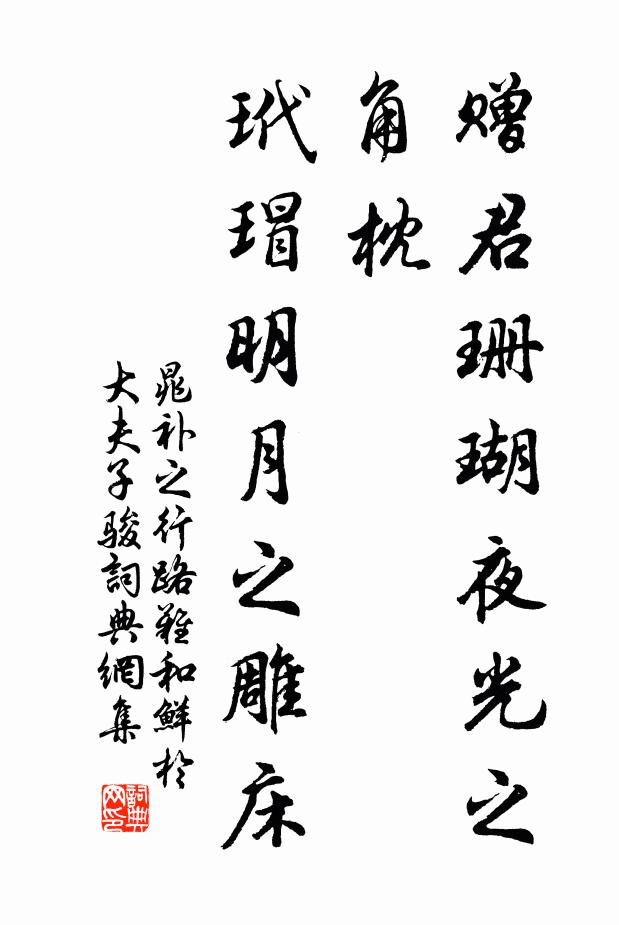 赠君珊瑚夜光之
角枕
玳瑁明月之雕床
晁补之行路难和鲜於
大夫子骏詞典網集
詞典
网印